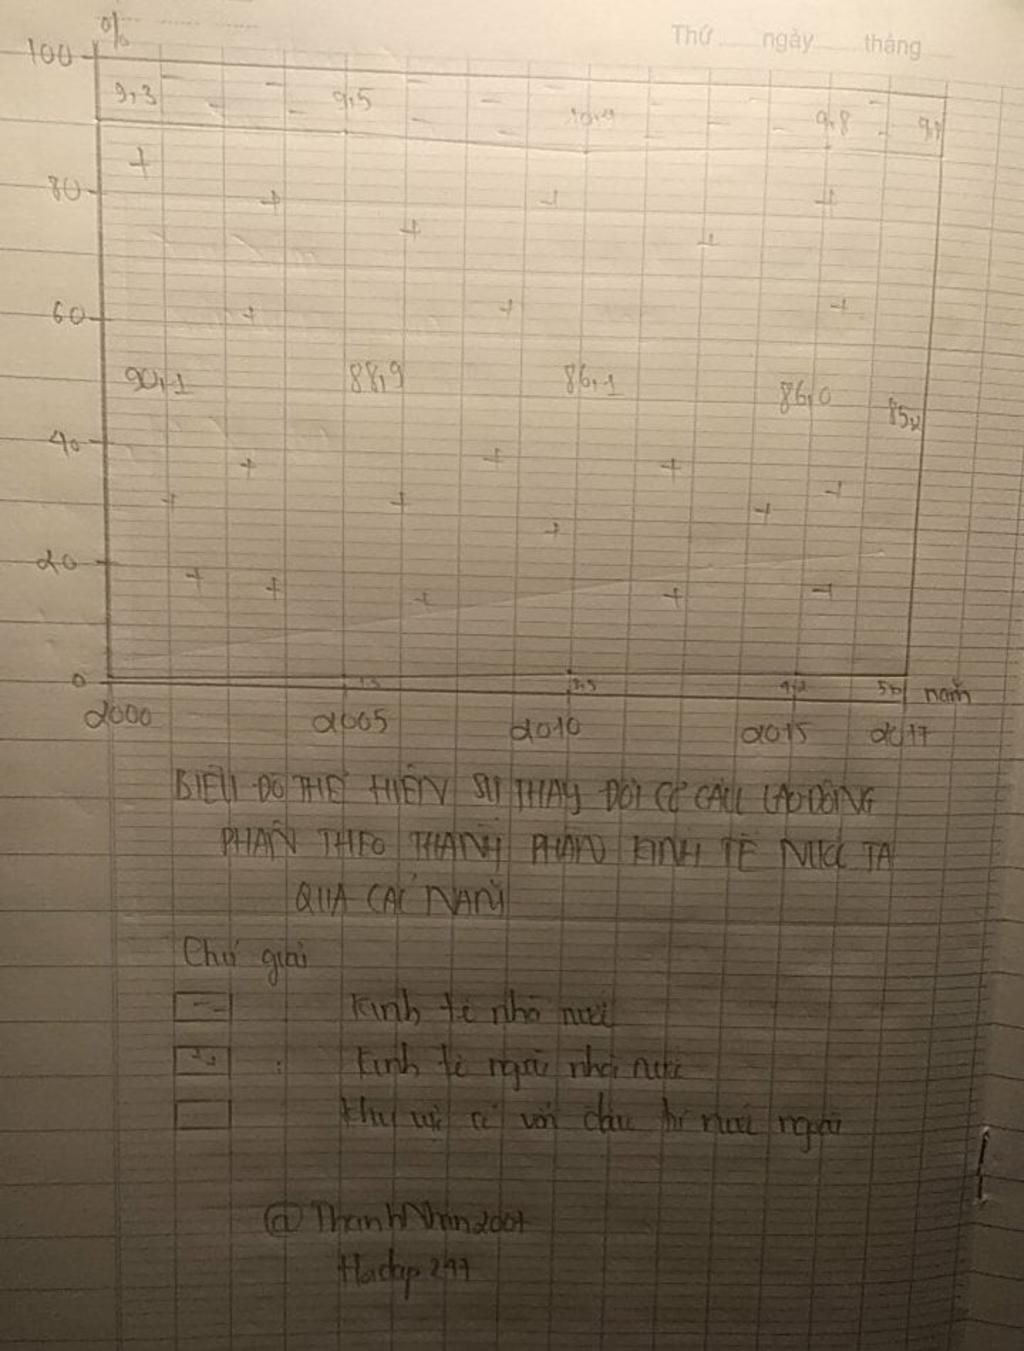 %
Thứ ngày tháng
100
9,3 9,5 9,8
80
60
90,1 88,9 86,1 86,0
40
20
0
năm
2000 2005 2010 2015 2017
BIỂU ĐỒ THỂ HIỆN SỰ THAY ĐỔI CƠ CẤU LAO ĐỘNG
PHÂN THEO THÀNH PHẦN KINH TẾ NƯỚC TA
QUA CÁC NĂM
Chú giải
Kinh tế nhà nước
: Kinh tế ngoài nhà nước
Khu vực có vốn đầu tư nước ngoài
@ThanhNhan2007
Hoidap247